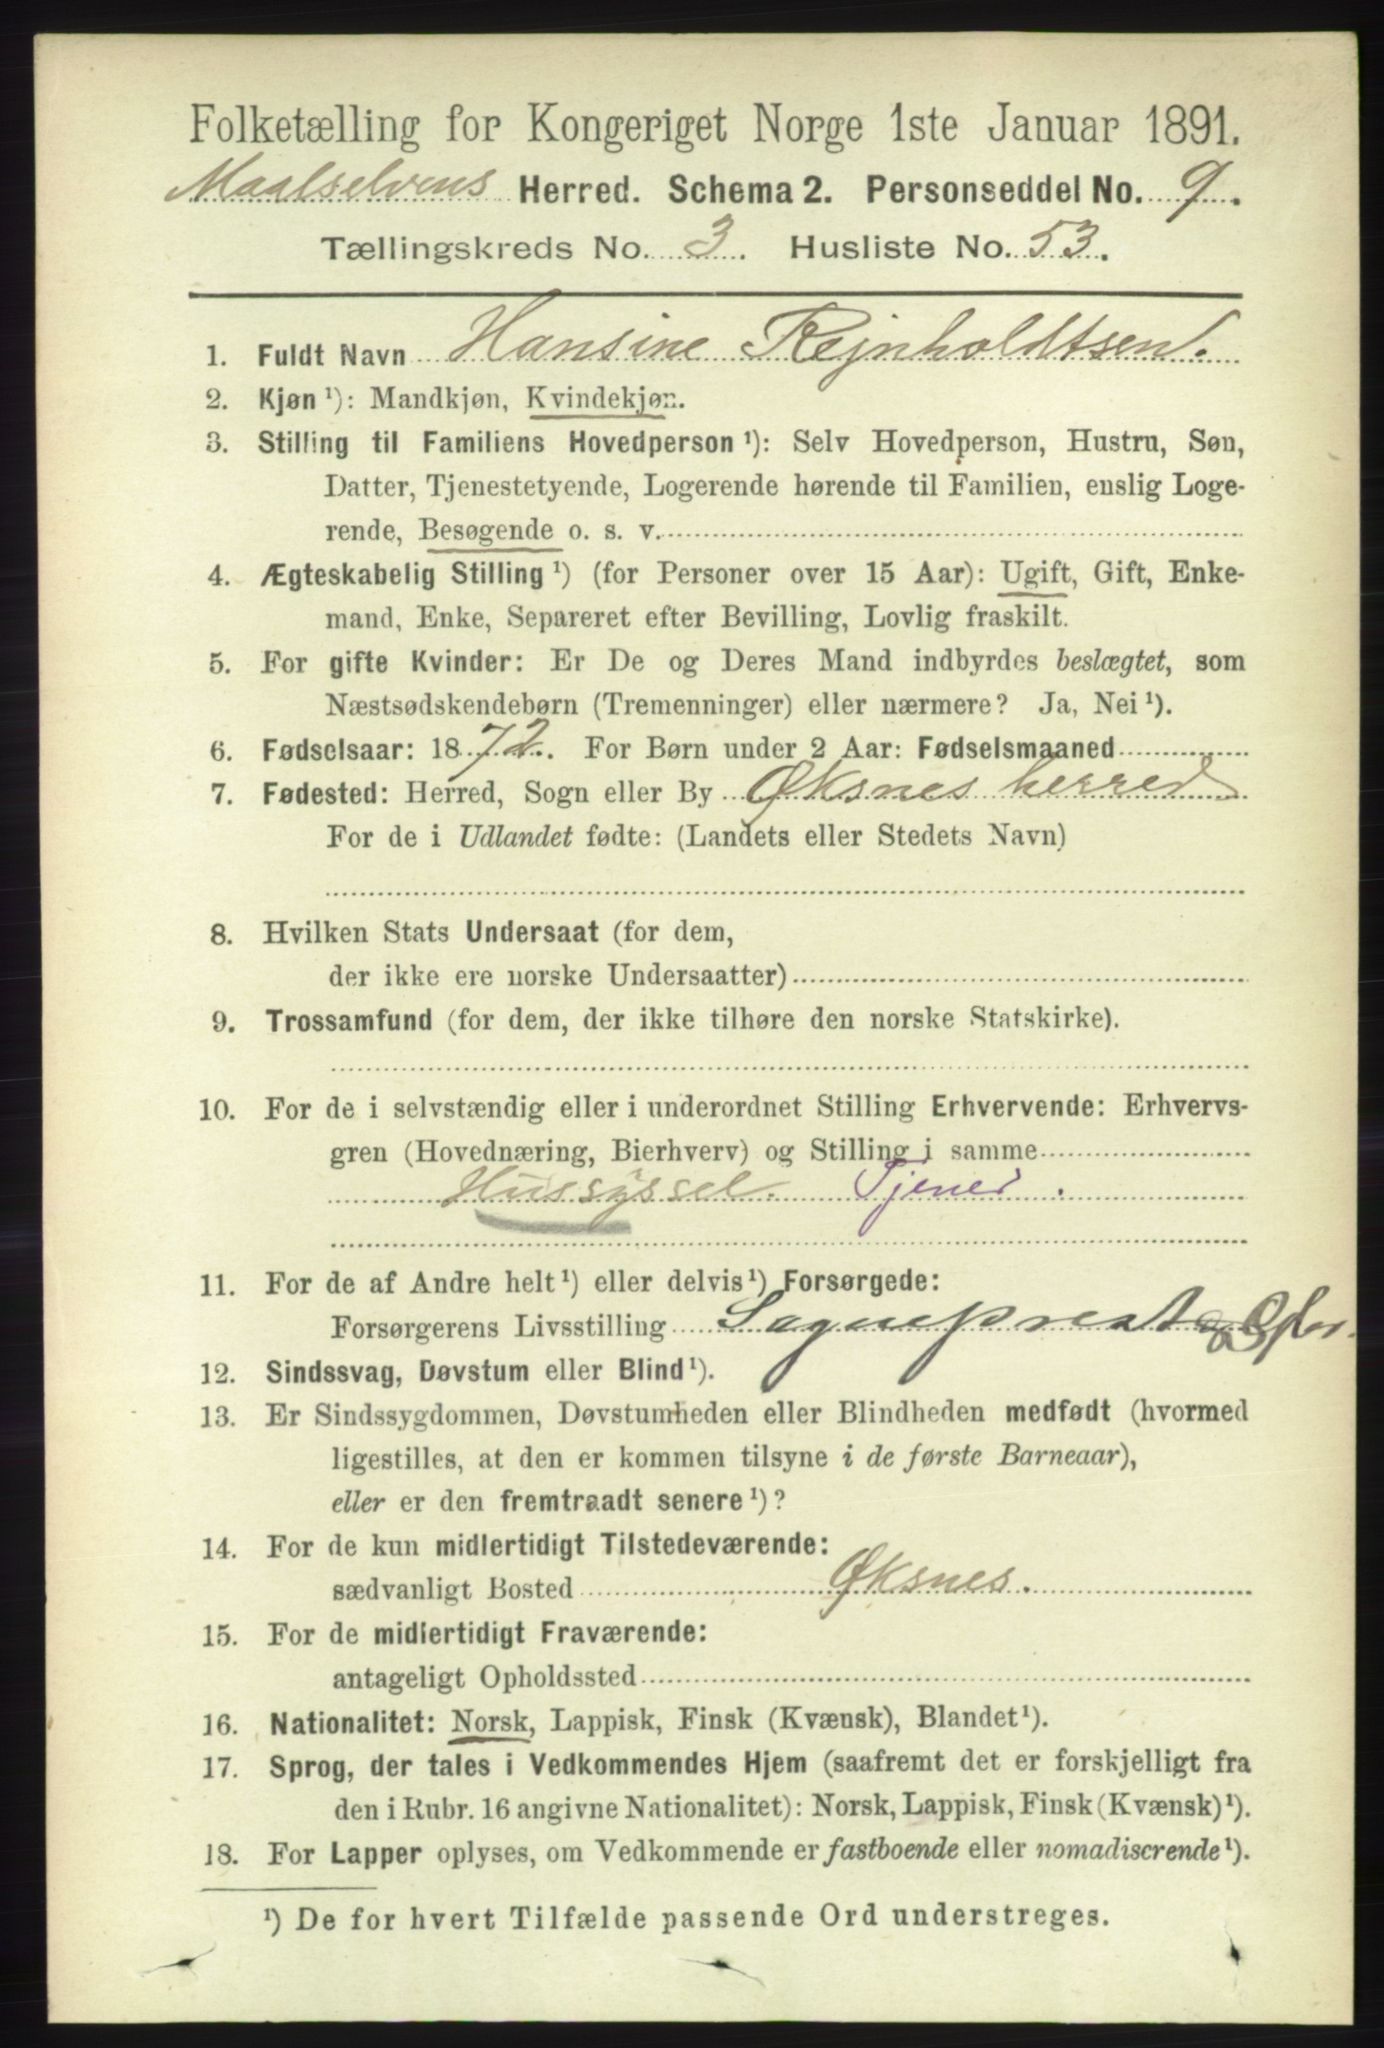 Folketælling for Kongeriget Norge 1ste Januar 1891.
Maalselvens Herred. Schema 2. Personseddel No. 9.
Tællingskreds No. 3. Husliste No. 53.
1. Fuldt Navn Hansine Rejnholdtsen.
2. Kjøn ¹): Mandkjøn, Kvindekjøn.
3. Stilling til Familiens Hovedperson ¹): Selv Hovedperson, Hustru, Søn,
Datter, Tjenestetyende, Logerende hørende til Familien, enslig Loge-
rende, Besøgende o. s. v.
4. Ægteskabelig Stilling ¹) (for Personer over 15 Aar): Ugift, Gift, Enke-
mand, Enke, Separeret efter Bevilling, Lovlig fraskilt.
5. For gifte Kvinder: Er De og Deres Mand indbyrdes beslægtet, som
Næstsødskendebørn (Tremenninger) eller nærmere? Ja, Nei ¹).
6. Fødselsaar: 1872. For Børn under 2 Aar: Fødselsmaaned
7. Fødested: Herred, Sogn eller By Øksnes herred
For de i Udlandet fødte: (Landets eller Stedets Navn)
8. Hvilken Stats Undersaat (for dem,
der ikke ere norske Undersaatter)
9. Trossamfund (for dem, der ikke tilhøre den norske Statskirke).
10. For de i selvstændig eller i underordnet Stilling Erhvervende: Erhvervs-
gren (Hovednæring, Bierhverv) og Stilling i samme
Hussyssel. Tjener.
11. For de af Andre helt ¹) eller delvis ¹) Forsørgede:
Forsørgerens Livsstilling Sogneprest
12. Sindssvag, Døvstum eller Blind ¹).
13. Er Sindssygdommen, Døvstumheden eller Blindheden medfødt (hvormed
ligestilles, at den er kommen tilsyne i de første Barneaar),
eller er den fremtraadt senere ¹)?
14. For de kun midlertidigt Tilstedeværende:
sædvanligt Bosted Øksnes.
15. For de midlertidigt Fraværende:
antageligt Opholdssted
16. Nationalitet: Norsk, Lappisk, Finsk (Kvænsk), Blandet ¹).
17. Sprog, der tales i Vedkommendes Hjem (saafremt det er forskjelligt fra
den i Rubr. 16 angivne Nationalitet): Norsk, Lappisk, Finsk (Kvænsk) ¹).
18. For Lapper oplyses, om Vedkommende er fastboende eller nomadiserende ¹).
¹) De for hvert Tilfælde passende Ord understreges.